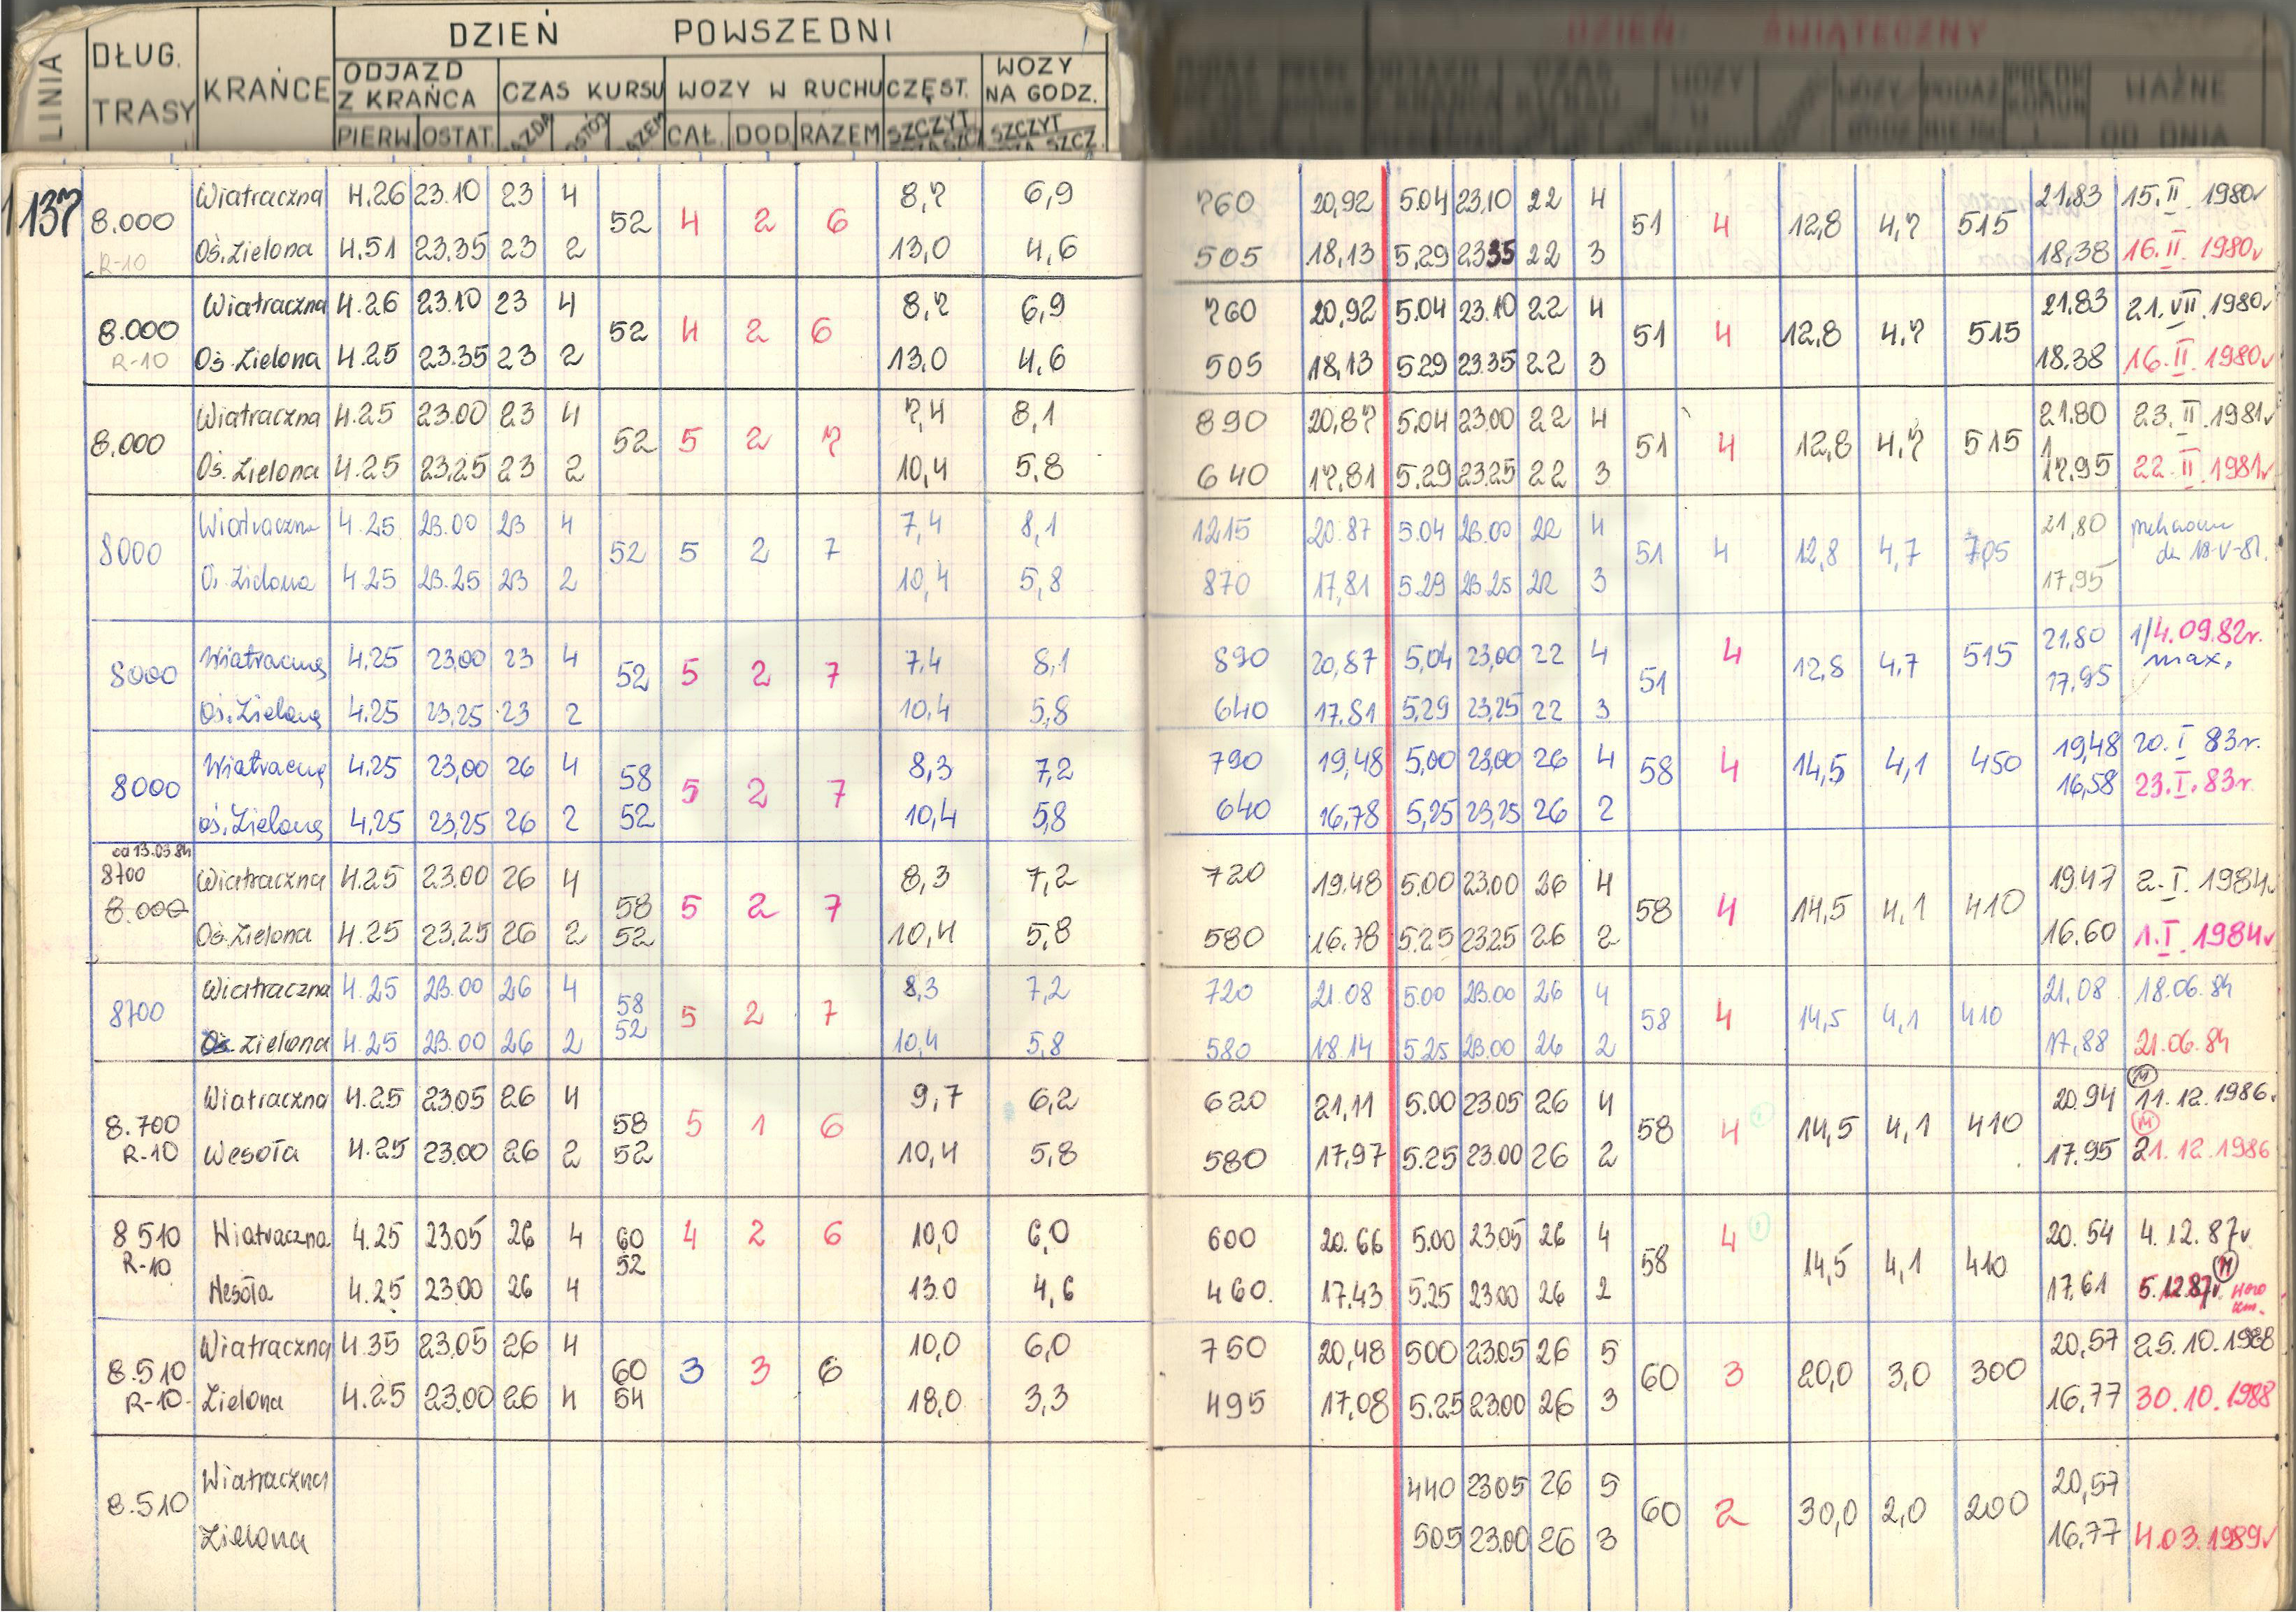 LINIA DŁUG. TRASY KRAŃCE DZIEŃ POWSZEDNI DZIEŃ ŚWIĄTECZNY
ODJAZD Z KRAŃCA CZAS KURSU WOZY W RUCHU CZĘST. WOZY NA GODZ. WAŻNE OD DNIA
PIERW. OSTAT. CAŁ. DOD. RAZEM SZCZYT SZCZYT
137
Wiatraczna 4.26 23.10 23 4 8,7 6,9 760 20,92 5.04 23.10 22 4 21.83 15.II.1980r
8.000 52 4 2 6 51 4 12,8 4,7 515
R-10 Oś. Zielona 4.51 23.35 23 2 13,0 4,6 505 18,13 5.29 23.35 22 3 18,38 16.II.1980r
Wiatraczna 4.26 23.10 23 4 8,7 6,9 760 20,92 5.04 23.10 22 4 21.83 21.VII.1980r
8.000 52 4 2 6 51 4 12,8 4,7 515
R-10 Oś. Zielona 4.25 23.35 23 2 13,0 4,6 505 18,13 5.29 23.35 22 3 18.38 16.II.1980r
Wiatraczna 4.25 23.00 23 4 7,4 8,1 890 20,87 5.04 23.00 22 4 21.80 23.II.1981r
8.000 52 5 2 7 51 4 12,8 4,7 515
Oś. Zielona 4.25 23.25 23 2 10,4 5,8 640 17,81 5.29 23.25 22 3 17.95 22.II.1981r
Wiatraczna 4.25 23.00 23 4 7,4 8,1 1215 20.87 5.04 23.00 22 4 21,80
8000 52 5 2 7 51 4 12,8 4,7 705 18-V-81.
Oś. Zielona 4.25 23.25 23 2 10,4 5,8 870 17,81 5.29 23.25 22 3 17,95
Wiatraczna 4.25 23,00 23 4 7,4 8,1 890 20,87 5,04 23,00 22 4 21,80 1/4.09.82r.
8000 52 5 2 7 51 4 12,8 4,7 515 max.
Oś. Zielona 4.25 23,25 23 2 10,4 5,8 640 17.81 5,29 23,25 22 3 17,95
Wiatraczna 4.25 23,00 26 4 58 8,3 7,2 790 19,48 5,00 23,00 26 4 19,48 20.I 83r.
8000 5 2 7 58 4 14,5 4,1 450
oś. Zielona 4,25 23,25 26 2 52 10,4 5,8 640 16,78 5,25 23,25 26 2 16,58 23.I.83r.
od 13.03.84
8700 Wiatraczna 4.25 23.00 26 4 58 8,3 7,2 720 19.48 5.00 23.00 26 4 19.47 2.I.1984r
8.000 5 2 7 58 4 14,5 4,1 410
Oś. Zielona 4.25 23.25 26 2 52 10,4 5,8 580 16.78 5.25 23.25 26 2 16.60 1.I.1984r
Wiatraczna 4.25 23.00 26 4 58 8,3 7,2 720 21.08 5.00 23.00 26 4 21,08 18.06.84
8700 5 2 7 58 4 14,5 4,1 410
Oś. Zielona 4.25 23.00 26 2 52 10,4 5,8 580 18.14 5.25 23.00 26 2 17,88 21.06.84
Wiatraczna 4.25 23.05 26 4 58 9,7 6,2 620 21,11 5.00 23.05 26 4 20.94 M 11.12.1986.
8.700 5 1 6 58 4 14,5 4,1 410
R-10 Wesoła 4.25 23.00 26 2 52 10,4 5,8 580 17,97 5.25 23.00 26 2 17.95 M 21.12.1986
8510 Wiatraczna 4.25 23.05 26 4 60 4 2 6 10,0 6,0 600 20.66 5.00 23.05 26 4 4 20.54 4.12.87r
R-10 52 58 14,5 4,1 410 M
Wesoła 4.25 23.00 26 4 13.0 4,6 460. 17.43 5.25 23.00 26 2 17,61 5.12.87r
Wiatraczna 4.35 23.05 26 4 10,0 6,0 750 20,48 500 23.05 26 5 20,57 25.10.1988
8.510 60 3 3 6 60 3 20,0 3,0 300
R-10 Zielona 4.25 23.00 26 4 54 18,0 3,3 495 17,08 5.25 23.00 26 3 16,77 30.10.1988
Wiatraczna 440 23.05 26 5 20,57
8.510 60 2 30,0 2,0 200
Zielona 505 23.00 26 3 16,77 4.03.1989r